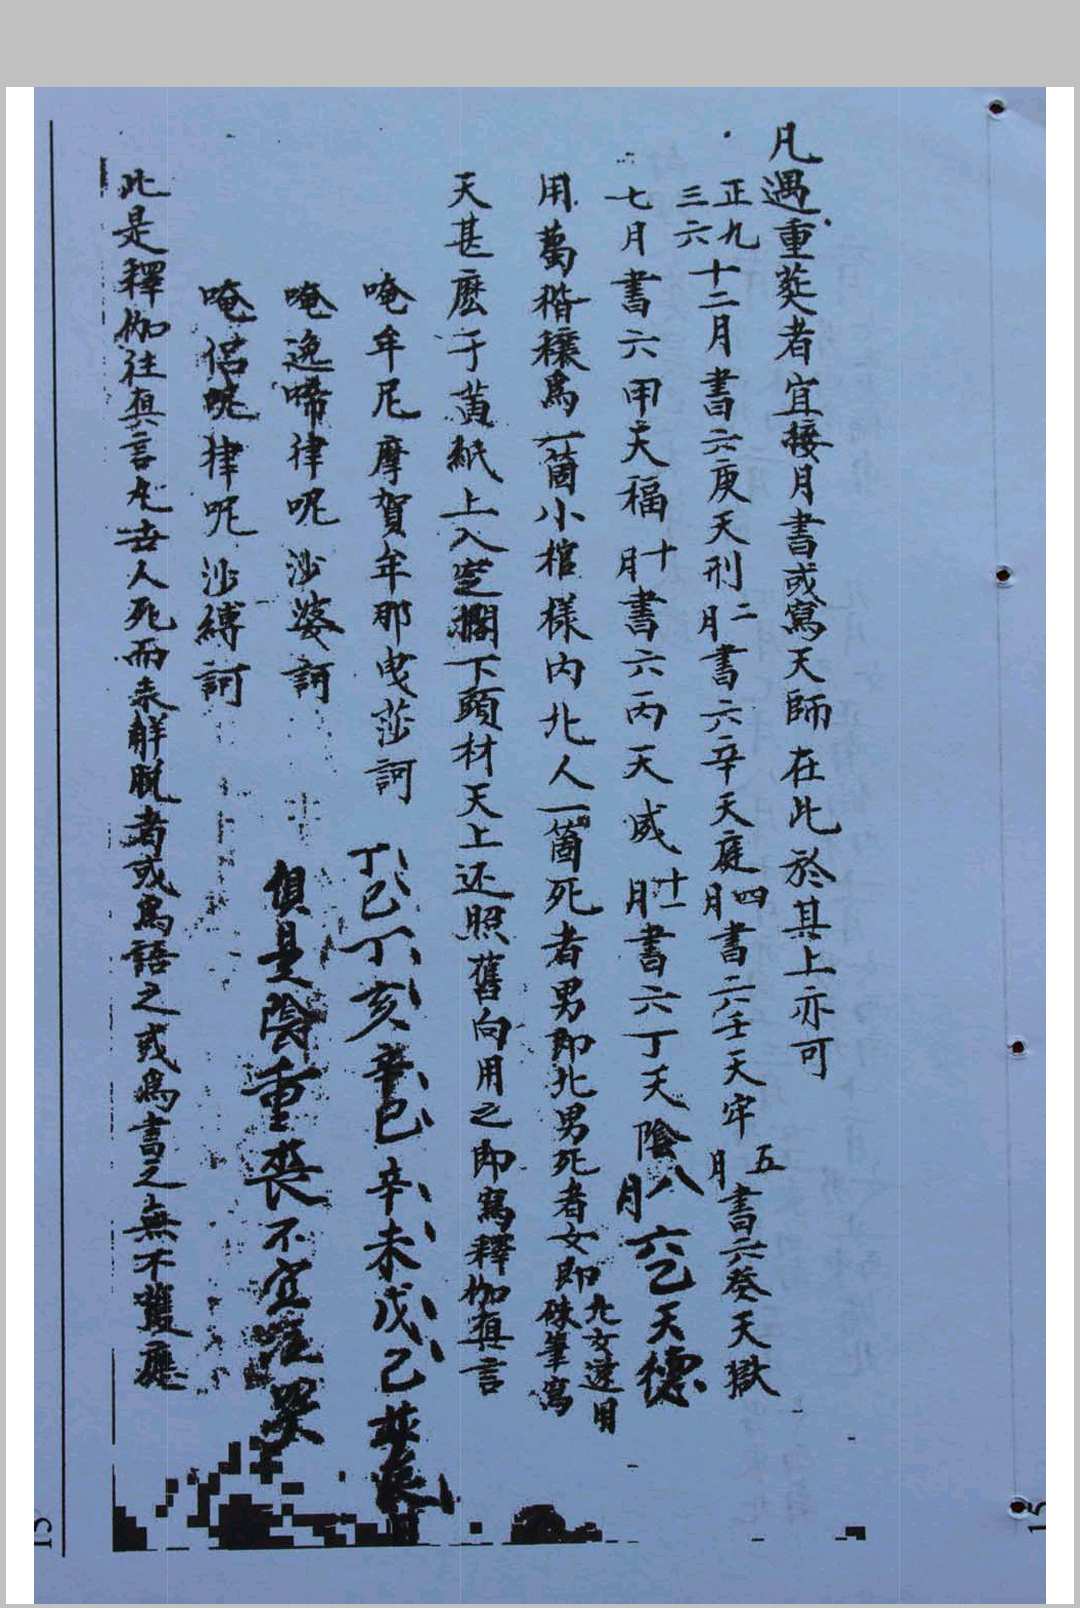 凡遇重葬者宜接月書或寫天師在此於其上亦可
正九三六十二月書六庚天刑二月書六辛天庭四月書六壬天牢五月書六癸天獄
七月書六甲天福十月書六丙天威十一月書六丁天陰八月六乙天德
用萬稭穰為一箇小棺樣內化人一箇死者男即化男死者女即化女速用硃筆寫
天甚麼于黃紙上入空擱下頭材天上还照舊向用之即寫釋伽真言
唵牟尼摩賀牟那曳莎訶 丁巳丁亥辛巳辛未戊己辰日
唵逸啼律呢沙婆訶 俱是陰重喪不宜哭
唵侶呢律呢沙縛訶
此是釋伽往真言凡世人死而未解脫者或為語之或為書之無不護應
15
15